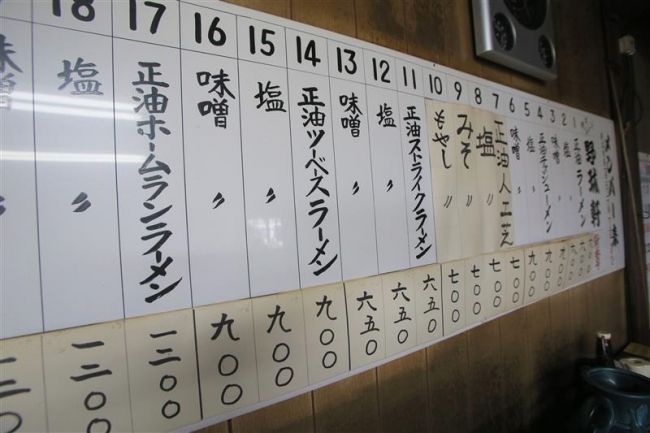 メンバー表
野球軒
1 正油ラーメン
2 塩 〃
3 味噌 〃
4 正油チャーシューメン 九〇〇
5 塩 〃 九〇〇
6 味噌 〃 九〇〇
7 正油人工芝 七〇〇
8 塩 〃 七〇〇
9 みそ 〃 七〇〇
10 もやし 〃 七〇〇
11 正油ストライクラーメン 六五〇
12 塩 〃 六五〇
13 味噌 〃 六五〇
14 正油ツーベースラーメン 九〇〇
15 塩 〃 九〇〇
16 味噌 〃 九〇〇
17 正油ホームランラーメン 一二〇〇
18 塩 〃 一二〇〇